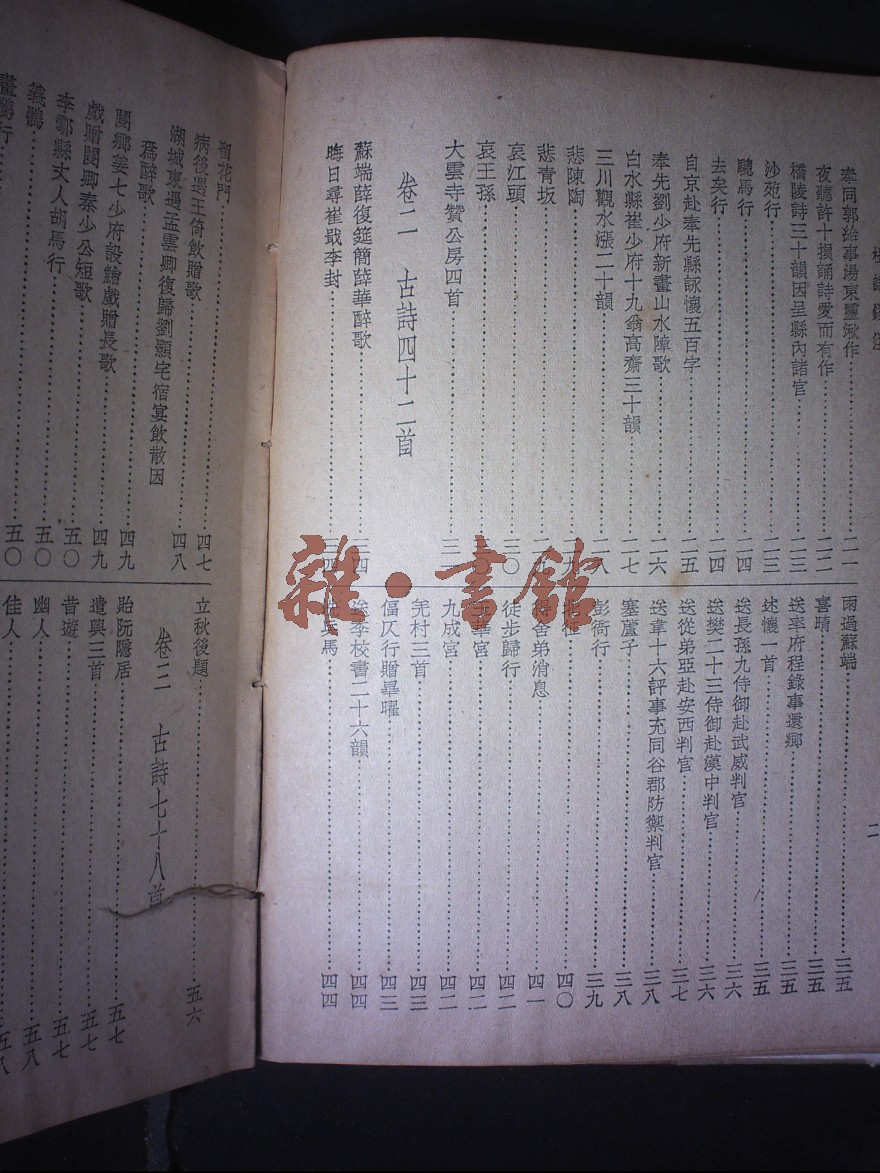 奉同郭給事湯東靈湫作……二一
夜聽許十損誦詩愛而有作……二二
橋陵詩三十韻因呈縣內諸官……二三
沙苑行……二三
驄馬行……二四
去矣行……二四
自京赴奉先縣詠懷五百字……二五
奉先劉少府新畫山水障歌……二六
白水縣崔少府十九翁高齋三十韻……二七
三川觀水漲二十韻……二八
悲陳陶
悲青坂
哀江頭……三〇
哀王孫
大雲寺贊公房四首……三一
卷二 古詩四十二首
蘇端薛復筵簡薛華醉歌……三四
晦日尋崔戢李封……三四
雨過蘇端……三五
喜晴……三五
送率府程錄事還鄉……三五
述懷一首……三五
送長孫九侍御赴武威判官……三六
送樊二十三侍御赴漢中判官……三六
送從弟亞赴安西判官……三七
送韋十六評事充同谷郡防禦判官……三八
塞蘆子……三八
彭衙行……三九
……四〇
得舍弟消息……四一
徒步歸行……四二
玉華宮……四二
九成宮……四二
羌村三首……四三
偪仄行贈畢曜……四三
送李校書二十六韻……四四
洗兵馬……四四
二
雜·書館
留花門……四七
病後過王倚飲贈歌……四八
湖城東遇孟雲卿復歸劉顥宅宿宴飲散因
為醉歌……四九
閿鄉姜七少府設鱠戲贈長歌……四九
戲贈閿鄉秦少公短歌……五〇
李鄠縣丈人胡馬行……五〇
義鶻……五〇
畫鶻行
立秋後題……五六
卷三 古詩七十八首
貽阮隱居……五七
遣興三首……五七
昔遊……五七
幽人……五八
佳人……五八